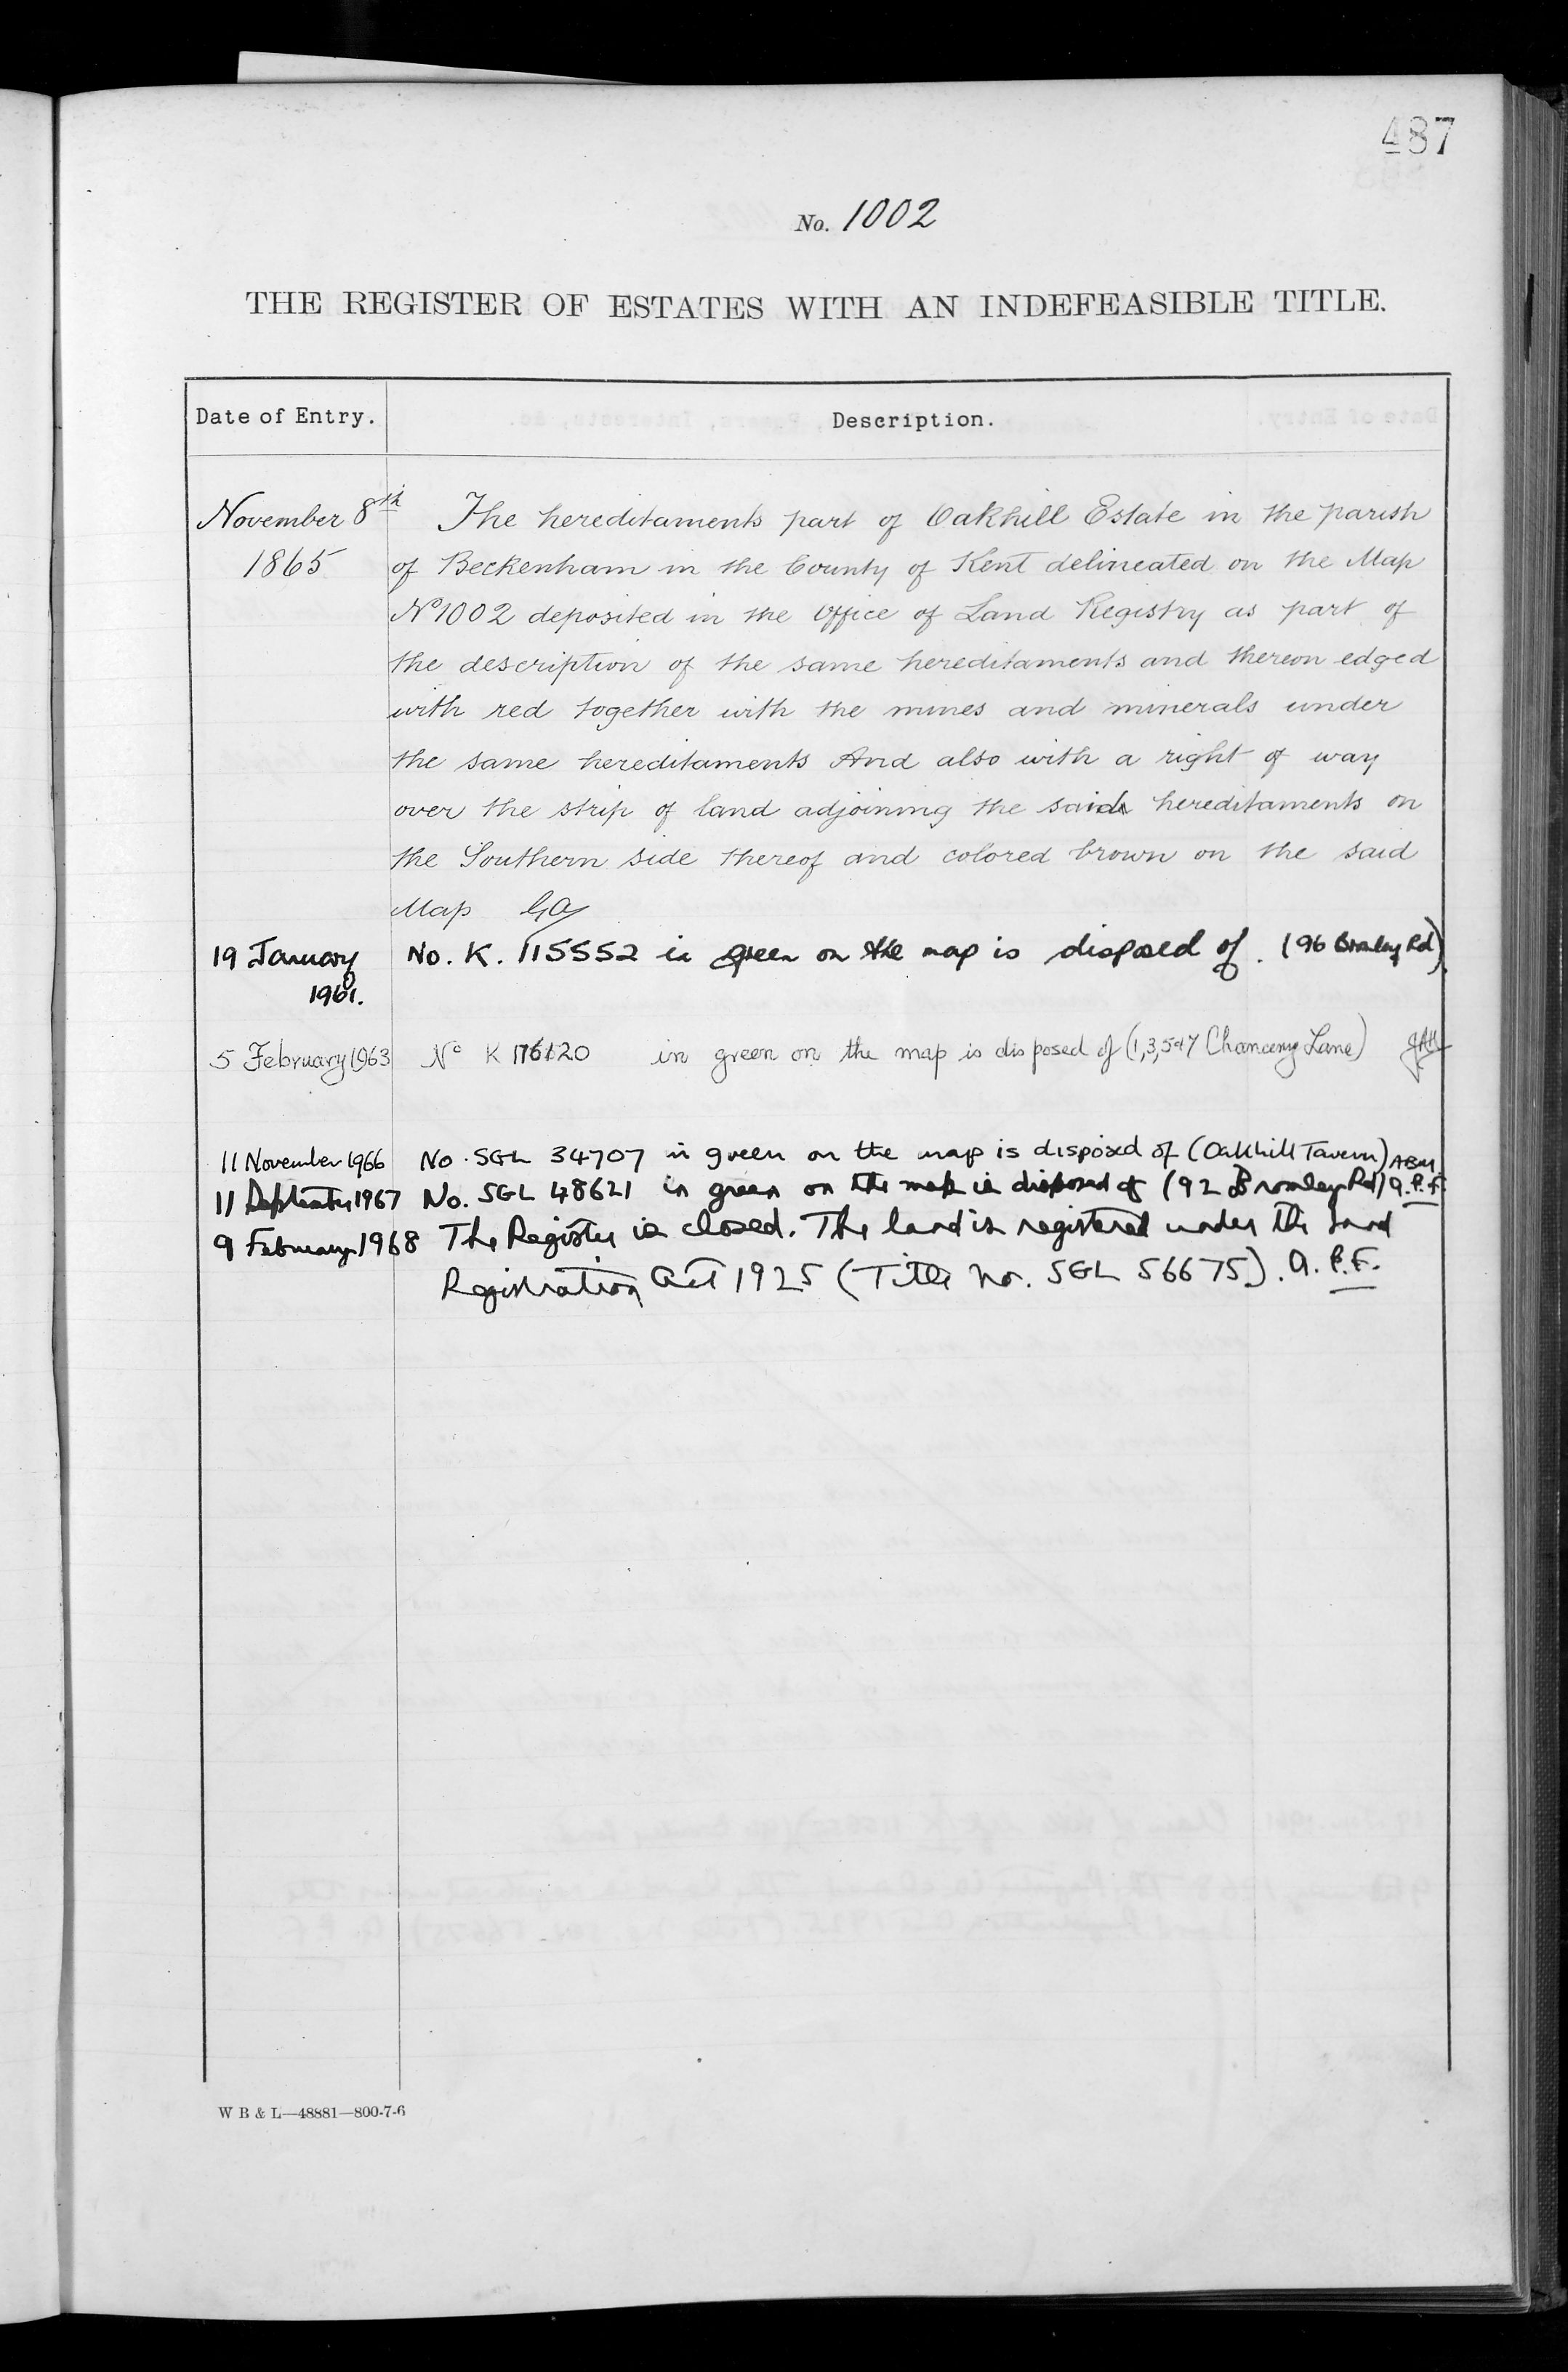 487
No. 1002
THE REGISTER OF ESTATES WITH AN INDEFEASIBLE TITLE.
Date of Entry. Description.
November 8th The hereditaments part of Oakhill Estate in the parish
1865 of Beckenham in the County of Kent delineated on the Map
No 1002 deposited in the Office of Land Registry as part of
the description of the same hereditaments and thereon edged
with red together with the mines and minerals under
the same hereditaments And also with a right of way
over the strip of land adjoining the said hereditaments on
the Southern side thereof and colored brown on the said
Map
19 January No. K. 115552 in green on the map is disposed of. (96 Bromley Rd)
1961.
5 February 1963 No K 176120 in green on the map is disposed of (1,3,5&7 Chancery Lane)
11 November 1966 No. SGL 34707 in green on the map is disposed of (Oakhill Tavern) ABM.
11 September 1967 No. SGL 48621 in green on the map is disposed of (92 Bromley Rd) A.P.F.
9 February 1968 The Register is closed. The land is registered under the Land
Registration Act 1925 (Title No. SGL 56675). A.P.F.
W B & L—48881—800-7-6